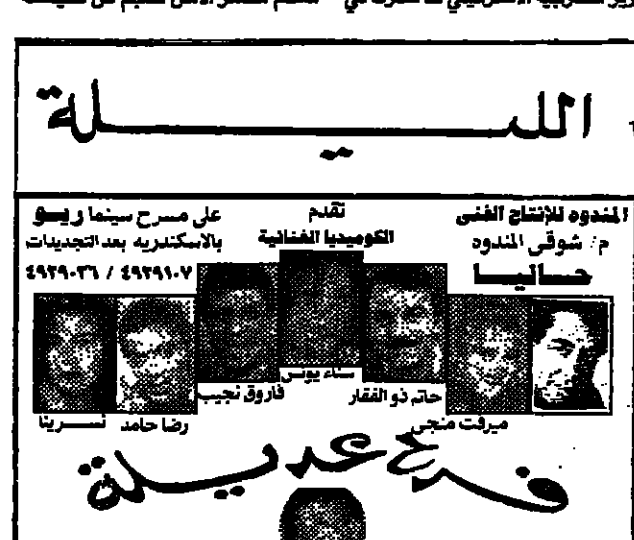 الليلة
المندوه للإنتاج الفنى
م: شوقى المندوه
حاليا
تقدم
الكوميديا الغنائية
على مسرح سينما ريو
بالاسكندريه بعد التجديدات
٤٩٢٩١٠٧ / ٤٩٢٩٠٣٦
ميرفت منجى
حاتم ذو الفقار
سناء يونس
فاروق نجيب
رضا حامد
نسرينا
فرح عديلة